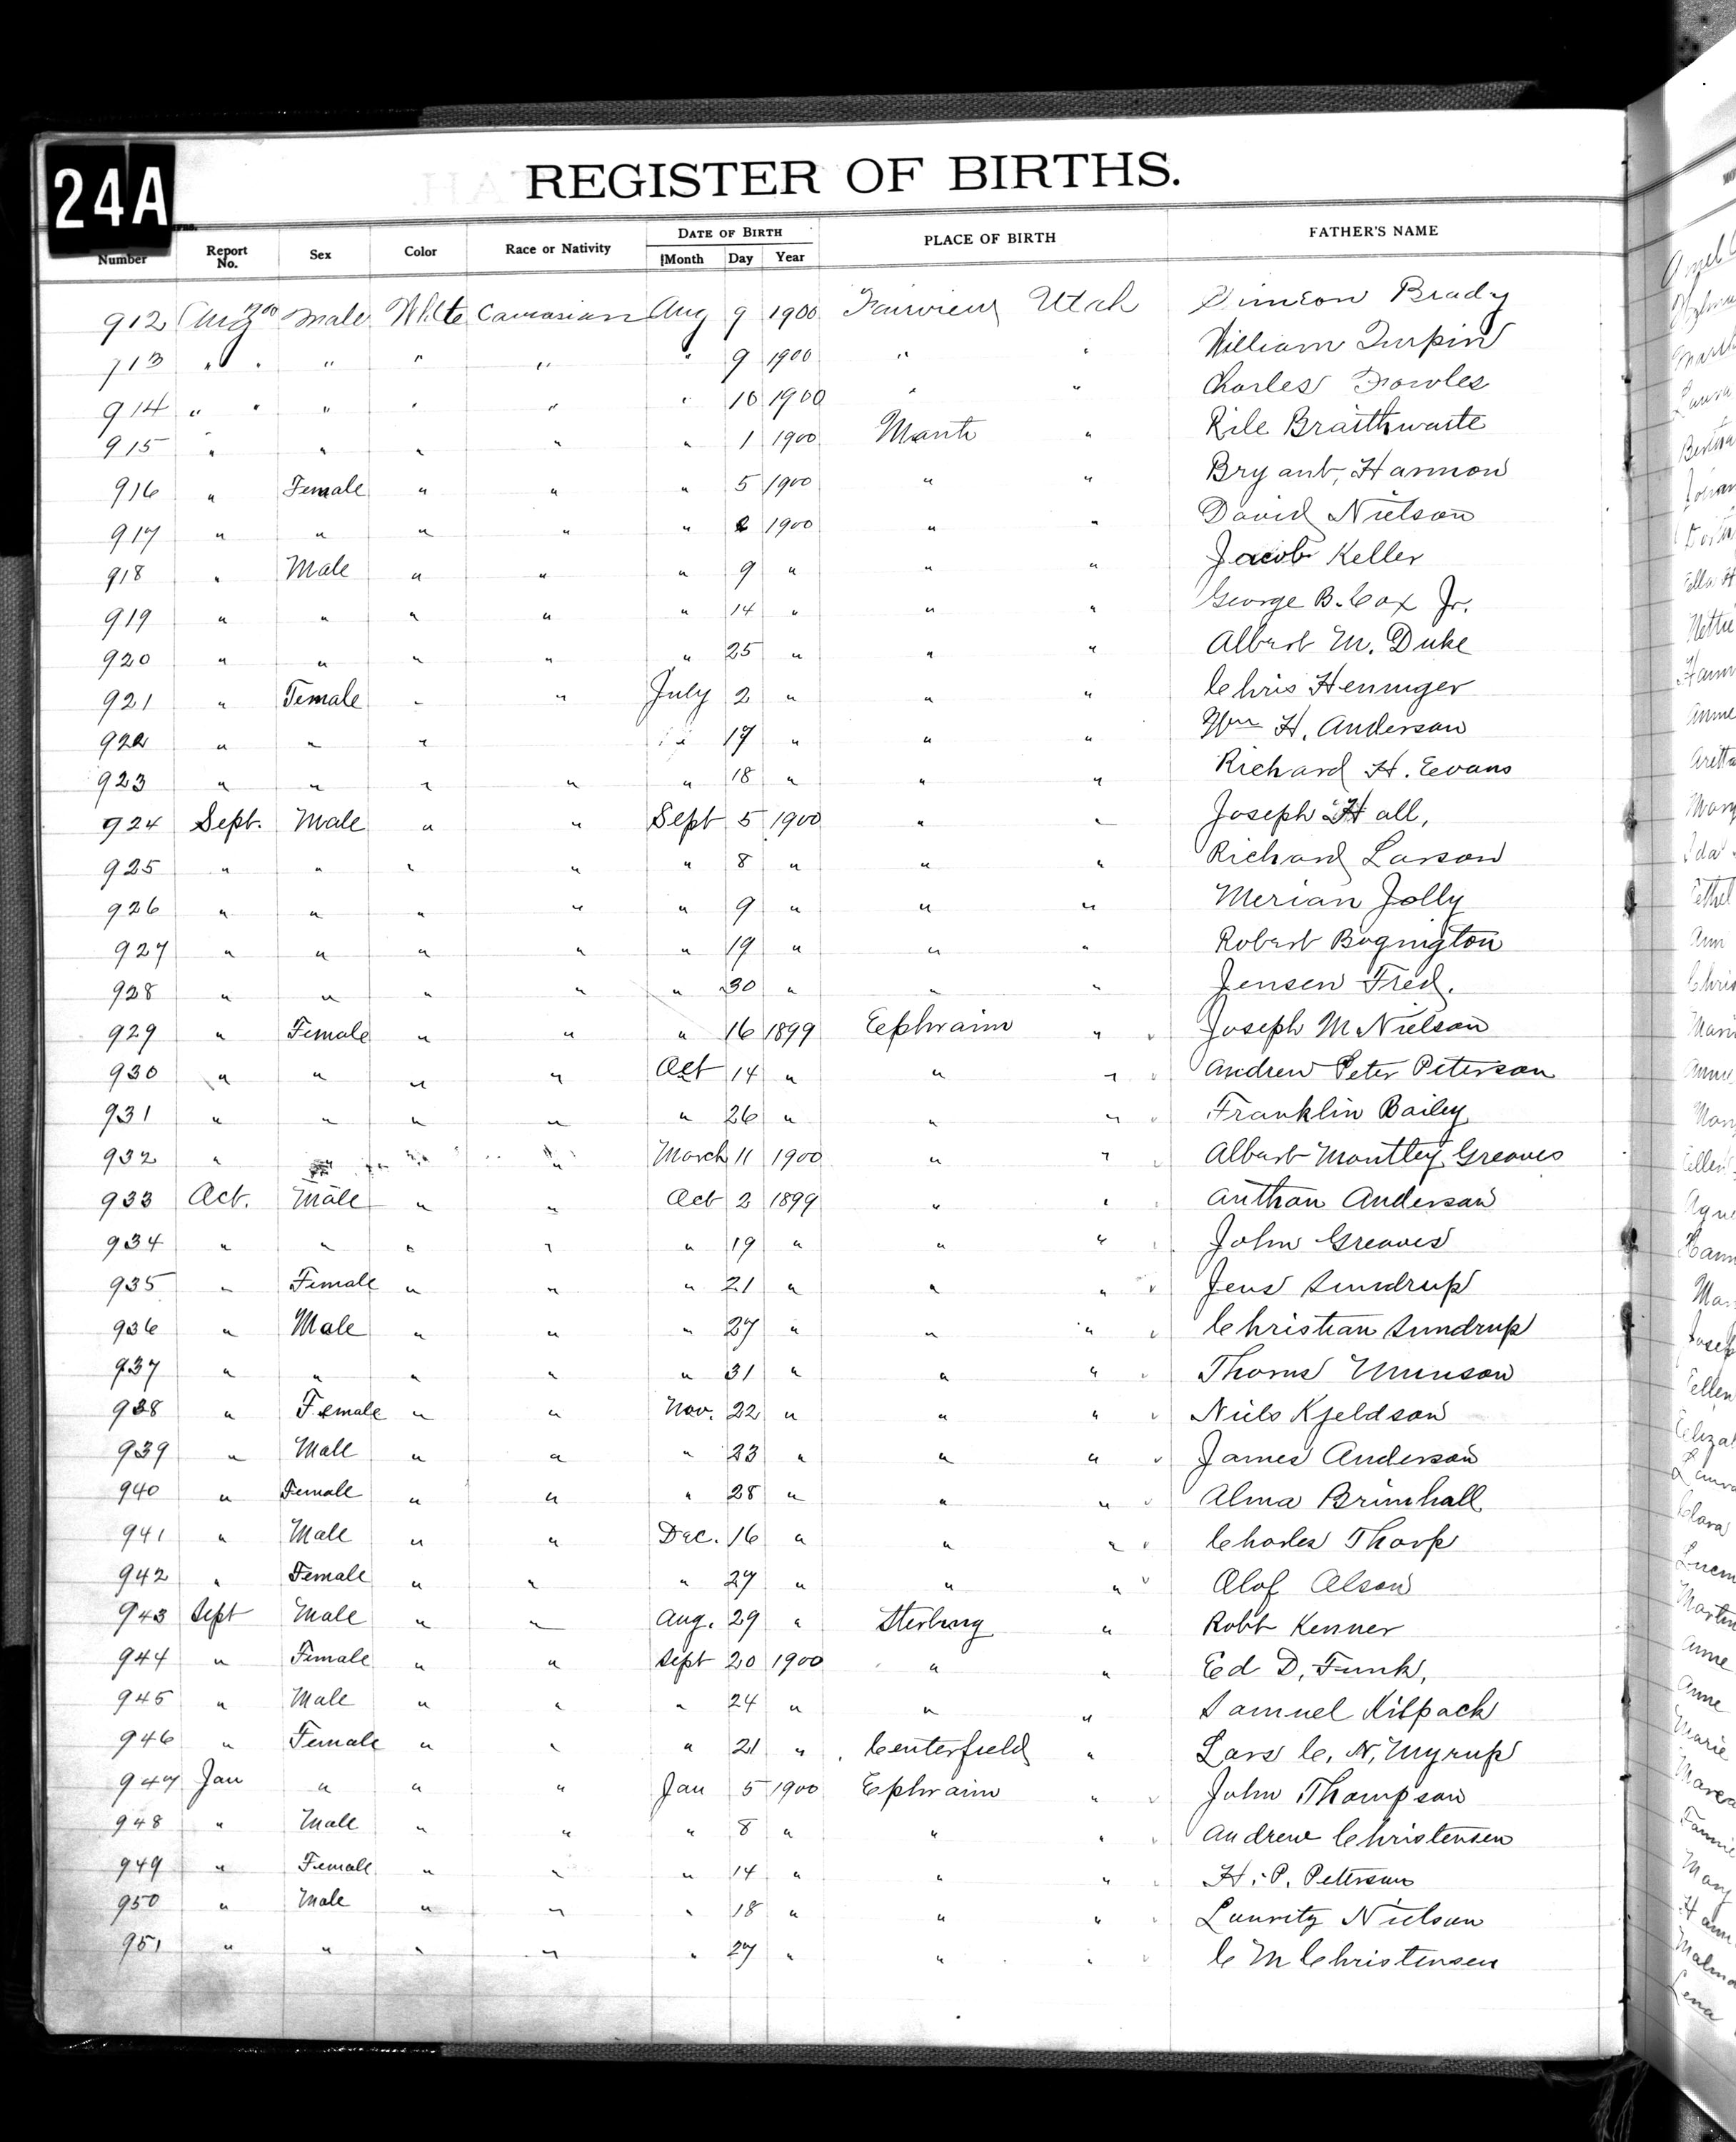 24A
REGISTER OF BIRTHS.
Number Report No. Sex Color Race or Nativity DATE OF BIRTH Month Day Year PLACE OF BIRTH FATHER'S NAME
912 Aug 1900 Male White Caucasian Aug 9 1900 Fairview Utah Simeon Brady
913 " " " " " " 9 1900 " " William Turpin
914 " " " " " " 10 1900 " " Charles Fowles
915 " " " " " 1 1900 Manti " Rile Braithwaite
916 " Female " " " 5 1900 " " Bryant, Harmon
917 " " " " " 1900 " " David Nielson
918 " Male " " " 9 " " " Jacob Keller
919 " " " " " 14 " " " George B. Cox Jr.
920 " " " " " 25 " " " Albert M. Duke
921 " Female " " July 2 " " " Chris Henniger
922 " " " " 17 " " " Wm H. Anderson
923 " " " " " 18 " " " Richard H. Evans
924 Sept. Male " " Sept 5 1900 " " Joseph Hall,
925 " " " " " 8 " " " Richard Larson
926 " " " " " 9 " " " Merian Jolly
927 " " " " " 19 " " " Robert Bognington
928 " " " " " 30 " " " Jensen Fred.
929 " Female " " " 16 1899 Ephraim " Joseph M Nielson
930 " " " " Oct 14 " " " Andrew Peter Peterson
931 " " " " " 26 " " " Franklin Bailey
932 " " " " March 11 1900 " " Albert Montley Greaves
933 Oct. Male " " Oct 2 1899 " " Anthon Anderson
934 " " " " " 19 " " " John Greaves
935 " Female " " " 21 " " " Jens Sundrup
936 " Male " " " 27 " " " Christian Sundrup
937 " " " " " 31 " " " Thoms Munson
938 " Female " " Nov. 22 " " " Niels Kjeldson
939 " Male " " " 23 " " " James Anderson
940 " Female " " " 28 " " " Alma Brimhall
941 " Male " " Dec. 16 " " " Charles Thorp
942 " Female " " " 27 " " " Olof Olson
943 Sept Male " " Aug. 29 " Sterling " Robt Kenner
944 " Female " " Sept 20 1900 " " Ed D. Funk,
945 " Male " " " 24 " " " Samuel Kilpack
946 " Female " " " 21 " Centerfield " Lars C. N. Myrup
947 Jan " " " Jan 5 1900 Ephraim " John Thompson
948 " Male " " " 8 " " " Andrew Christensen
949 " Female " " " 14 " " " H. P. Peterson
950 " Male " " " 18 " " " Lauritz Nielson
951 " " " " " 27 " " " C M Christensen